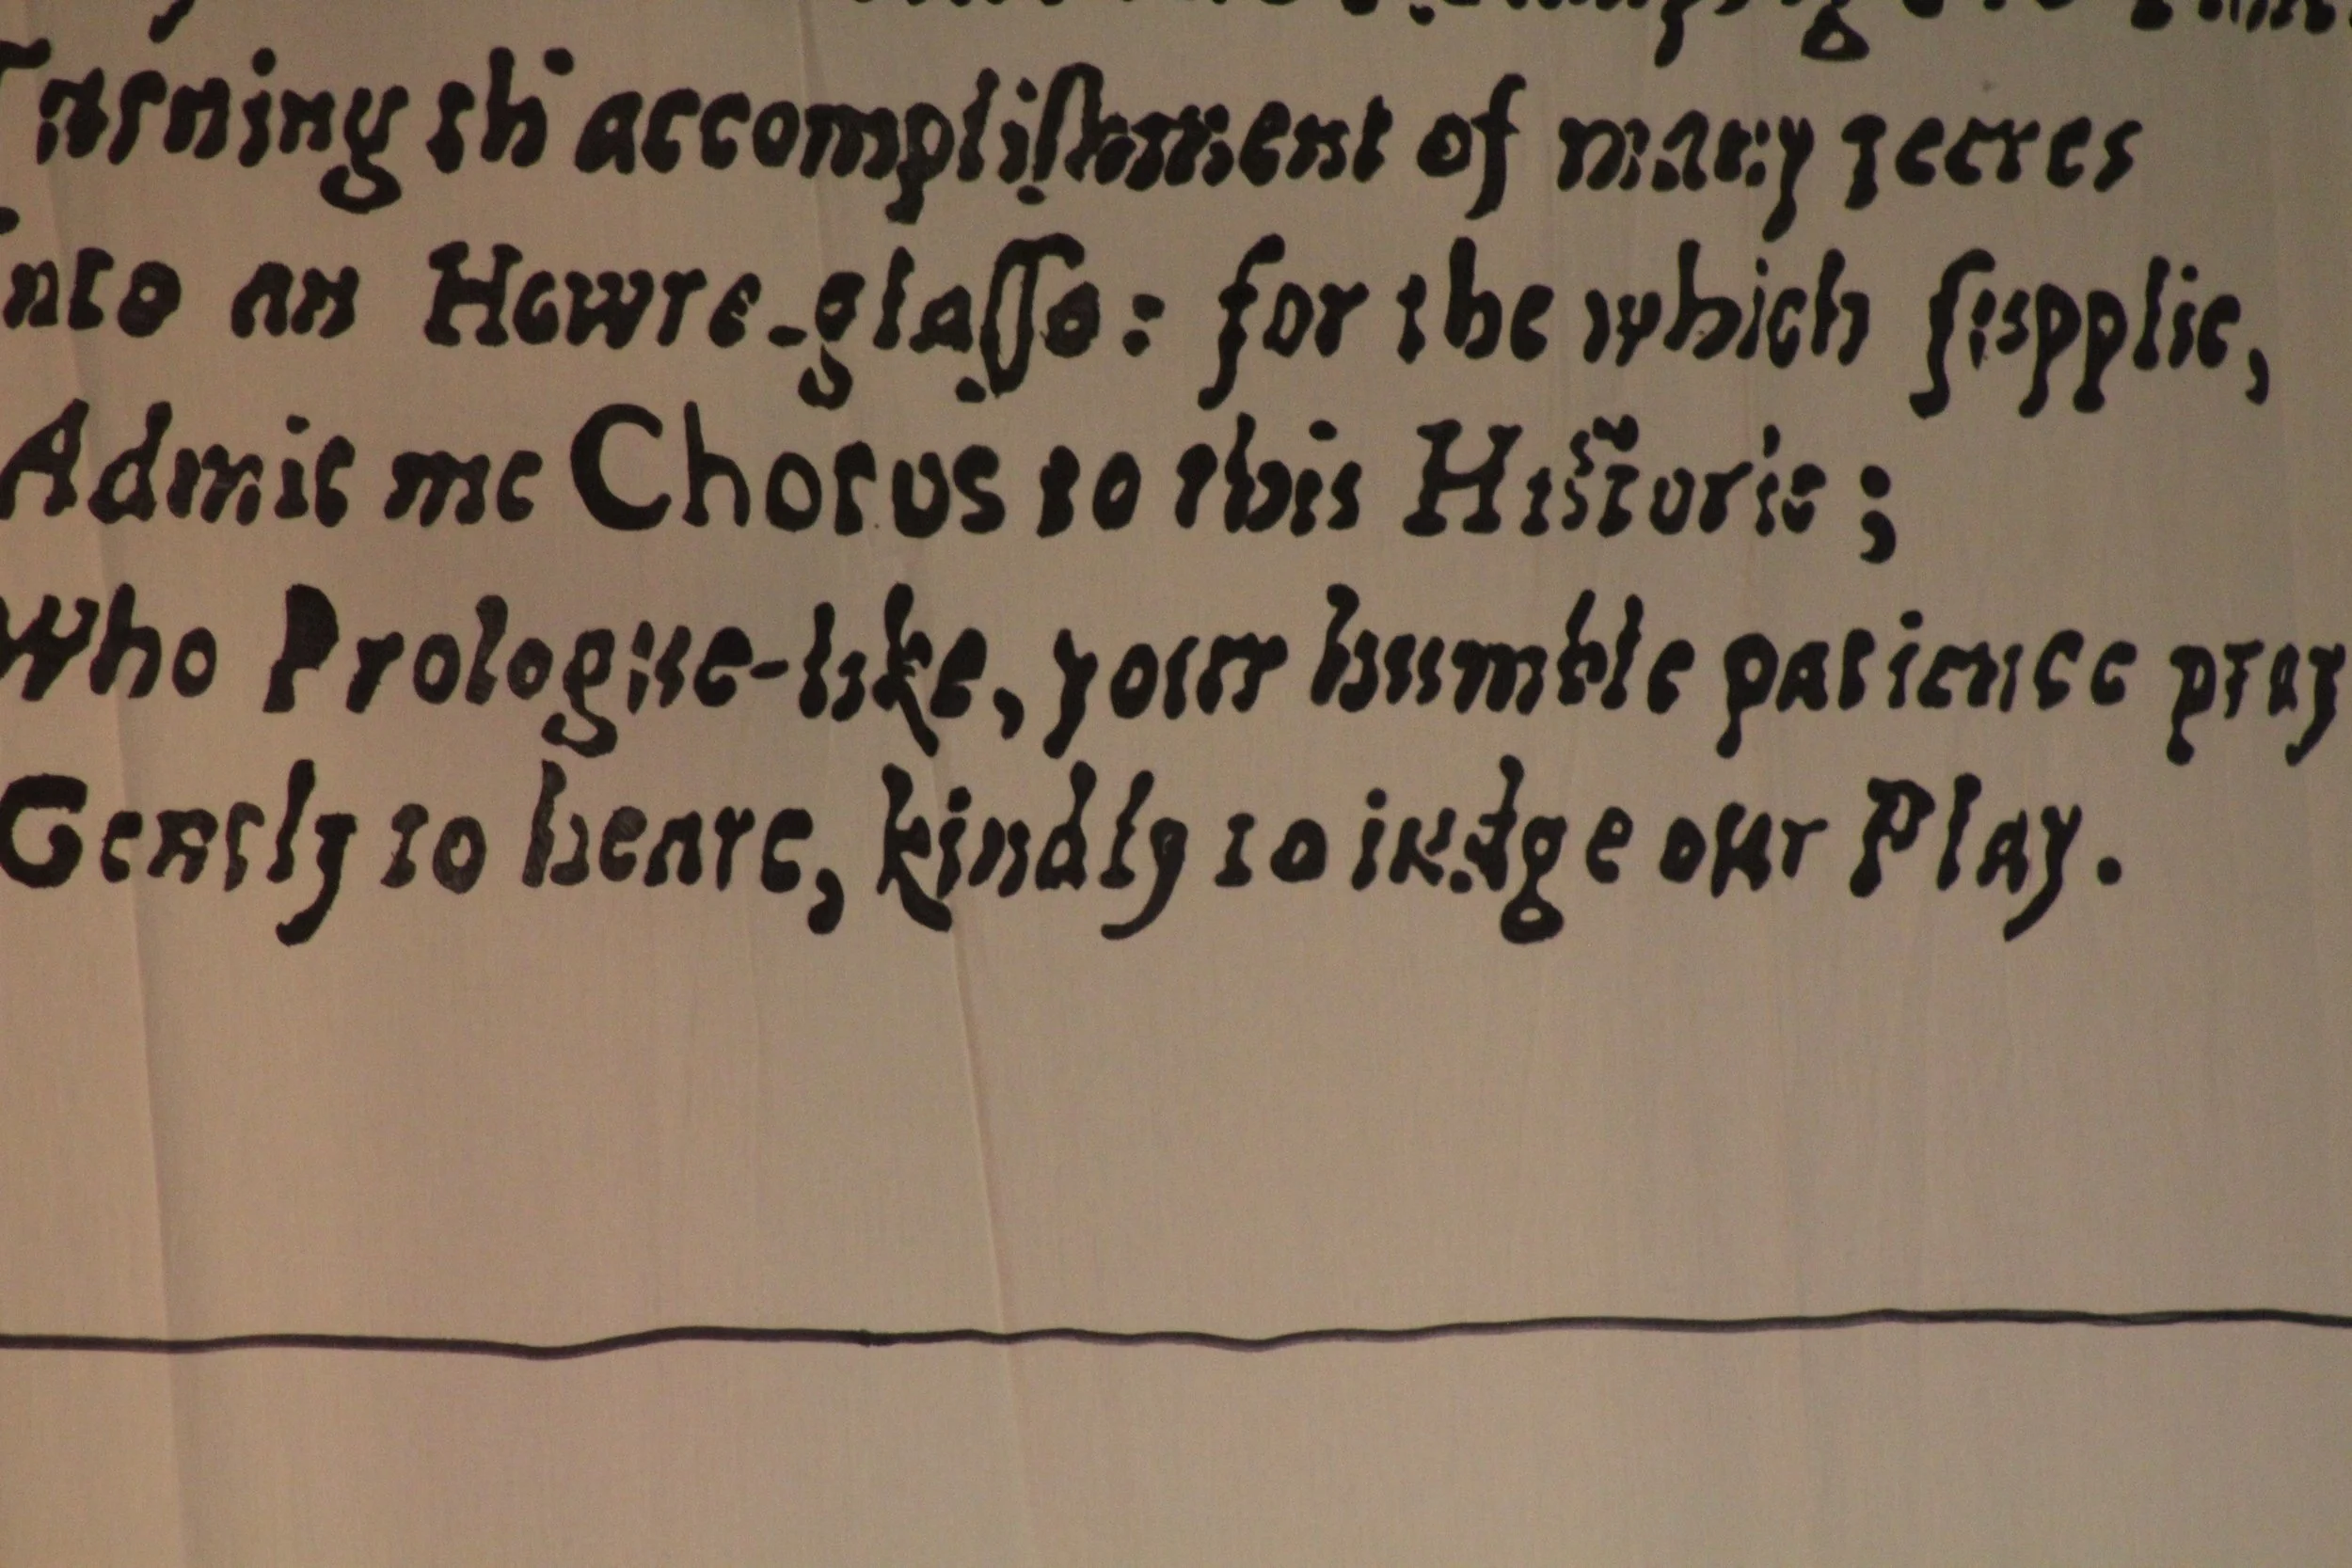 Turning th' accompliſhment of many yeeres
Into an Howre-glaſſe: for the which ſupplie,
Admit me Chorus to this Historie;
Who Prologue-like, your humble patience pray
Gently to heare, kindly to iudge our Play.